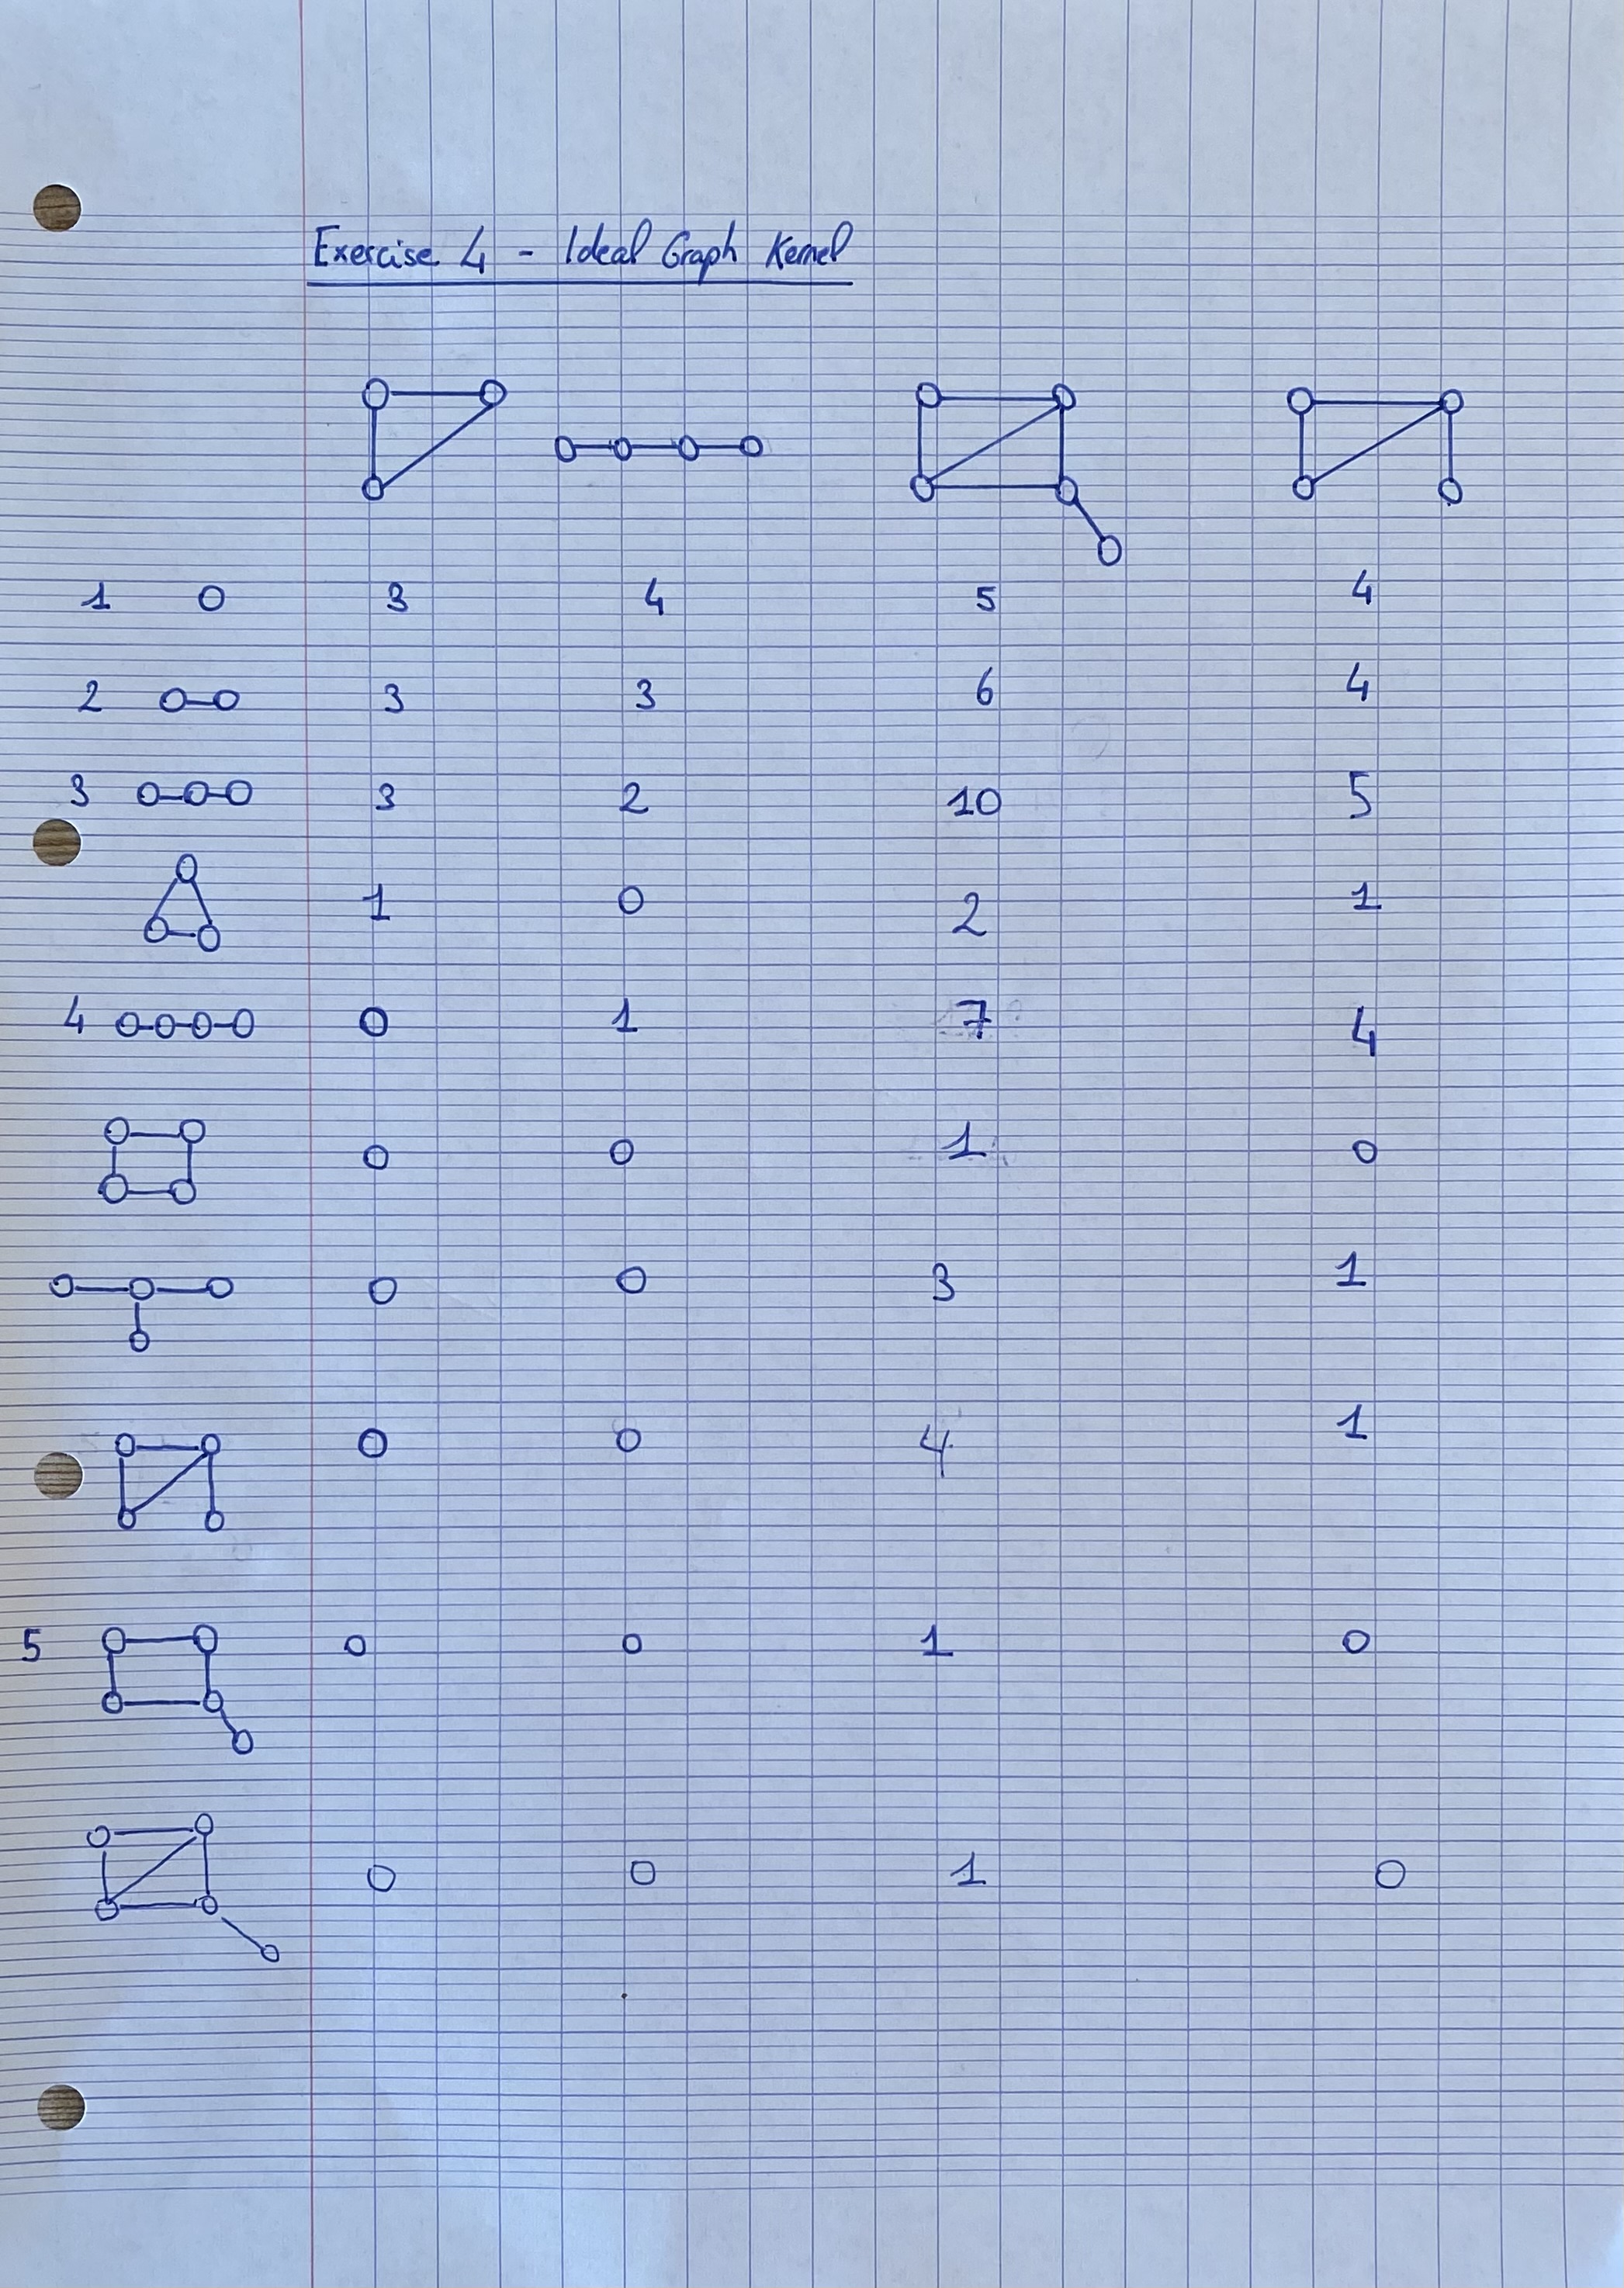 Exercise 4 - Ideal Graph Kernel
1 3 4 5 4
2 3 3 6 4
3 3 2 10 5
1 0 2 1
4 0 1 7 4
0 0 1 0
0 0 3 1
0 0 4 1
5 0 0 1 0
0 0 1 0